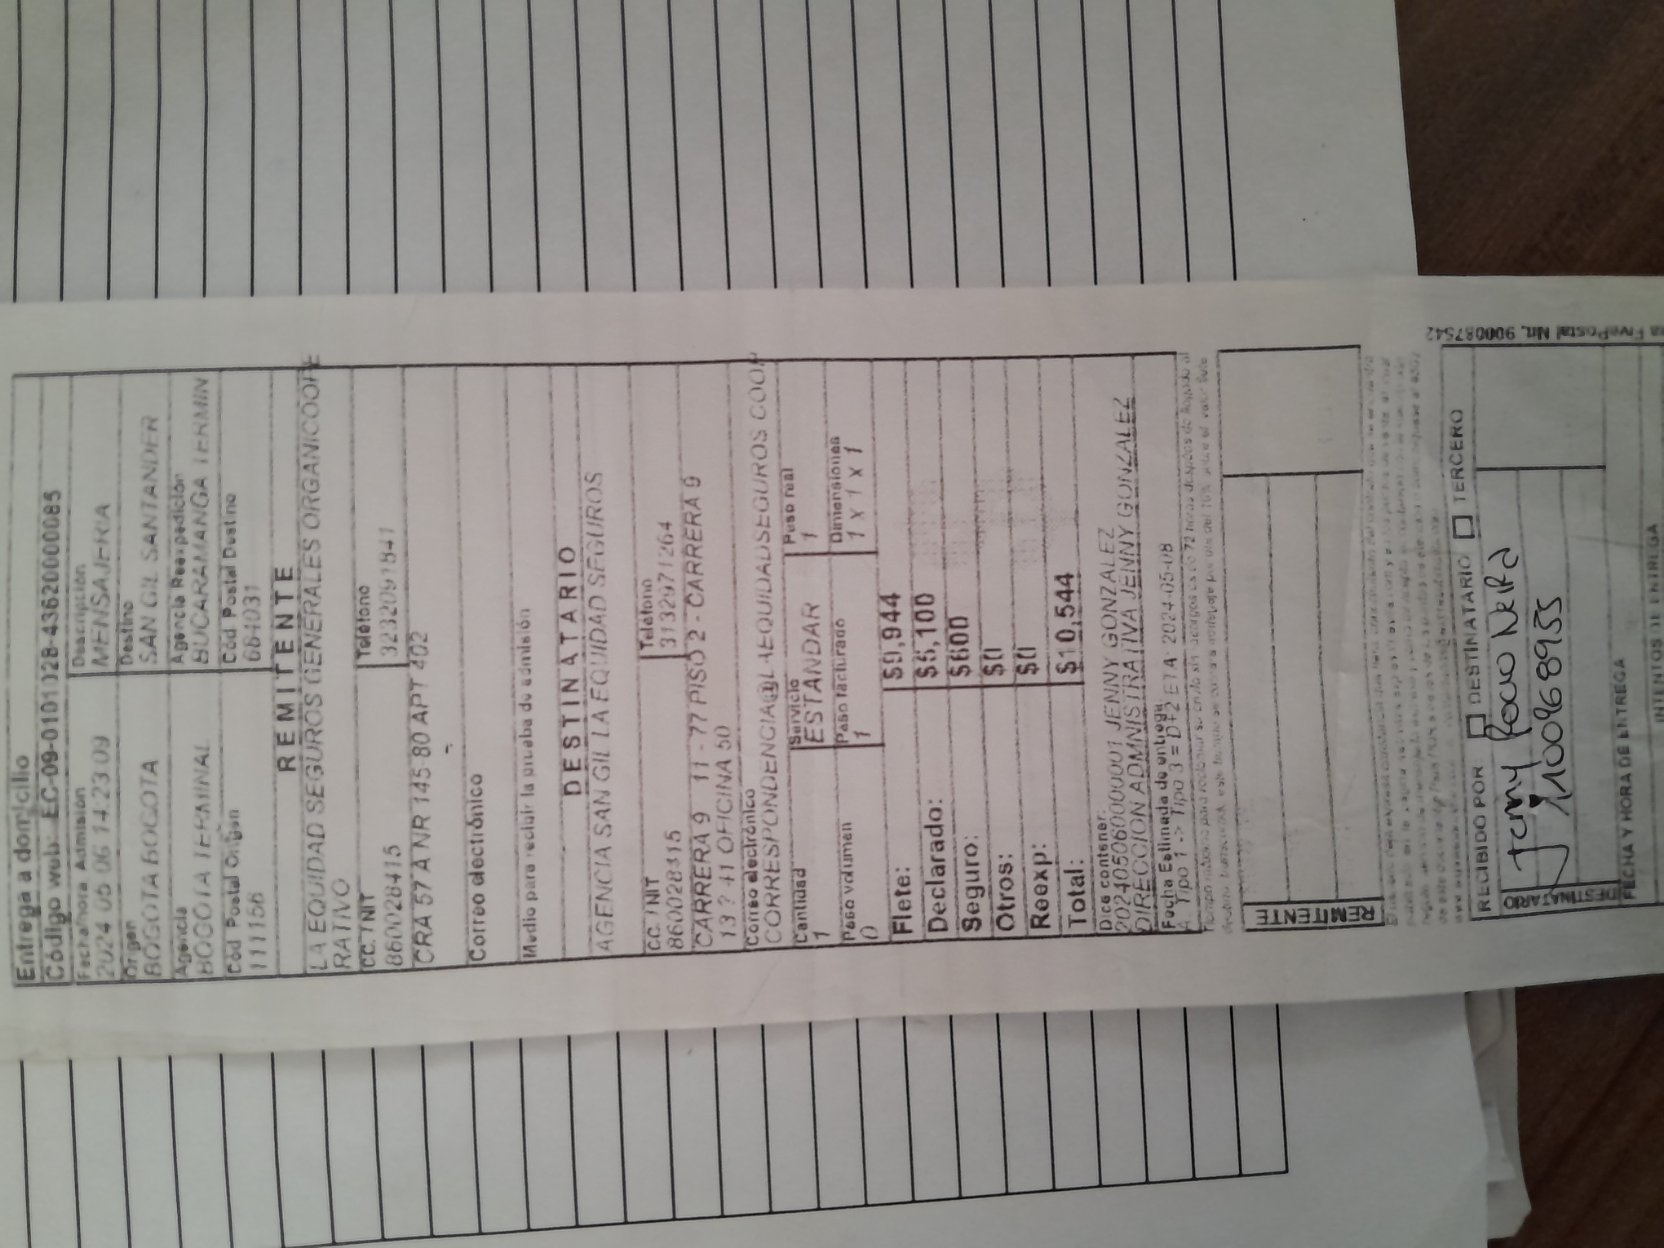 Entrega a domicilio
Código web: EC-09-0101028-436200000085
Fecha/hora Admisión Descripción
2024 05 06 14:23 09 MENSAJERIA
Origen Destino
BOGOTA BOGOTA SAN GIL SANTANDER
Agencia Agencia Reexpedición
BOGOTA TERMINAL BUCARAMANGA TERMIN
Cód Postal Origen Cód Postal Destino
111156 684031
REMITENTE
LA EQUIDAD SEGUROS GENERALES ORGANICOOPE
RATIVO
CC. / NIT Teléfono
860028415 3232091841
CRA 57 A NR 145 80 APT 402
Correo electrónico
Medio para recibir la prueba de admisión
DESTINATARIO
AGENCIA SAN GIL LA EQUIDAD SEGUROS
CC. / NIT Teléfono
8600028315 3132971264
CARRERA 9 11 - 77 PISO 2 - CARRERA 9
13 ? 41 OFICIINA 50
Correo electrónico
CORRESPONDENCIA@LAEQUIDADSEGUROS COOP
Cantidad Servicio Peso real
1 ESTANDAR 1
Peso volumen Peso facturado Dimensiones
0 1 1 x 1 x 1
Flete: $9,944
Declarado: $5,100
Seguro: $600
Otros: $0
Reexp: $0
Total: $10,544
Dice contener:
20240506000001 JENNY GONZALEZ
DIRECCION ADMNISTRATIVA JENNY GONZALEZ
Fecha Estimada de entrega
A Tipo 1 -> Tipo 3 = D+2 ETA: 2024-05-08
REMITENTE
RECIBIDO POR DESTINATARIO TERCERO
DESTINATARIO
1100968955
FECHA Y HORA DE ENTREGA
INTENTOS DE ENTREGA
FivePostal Nit. 900087542